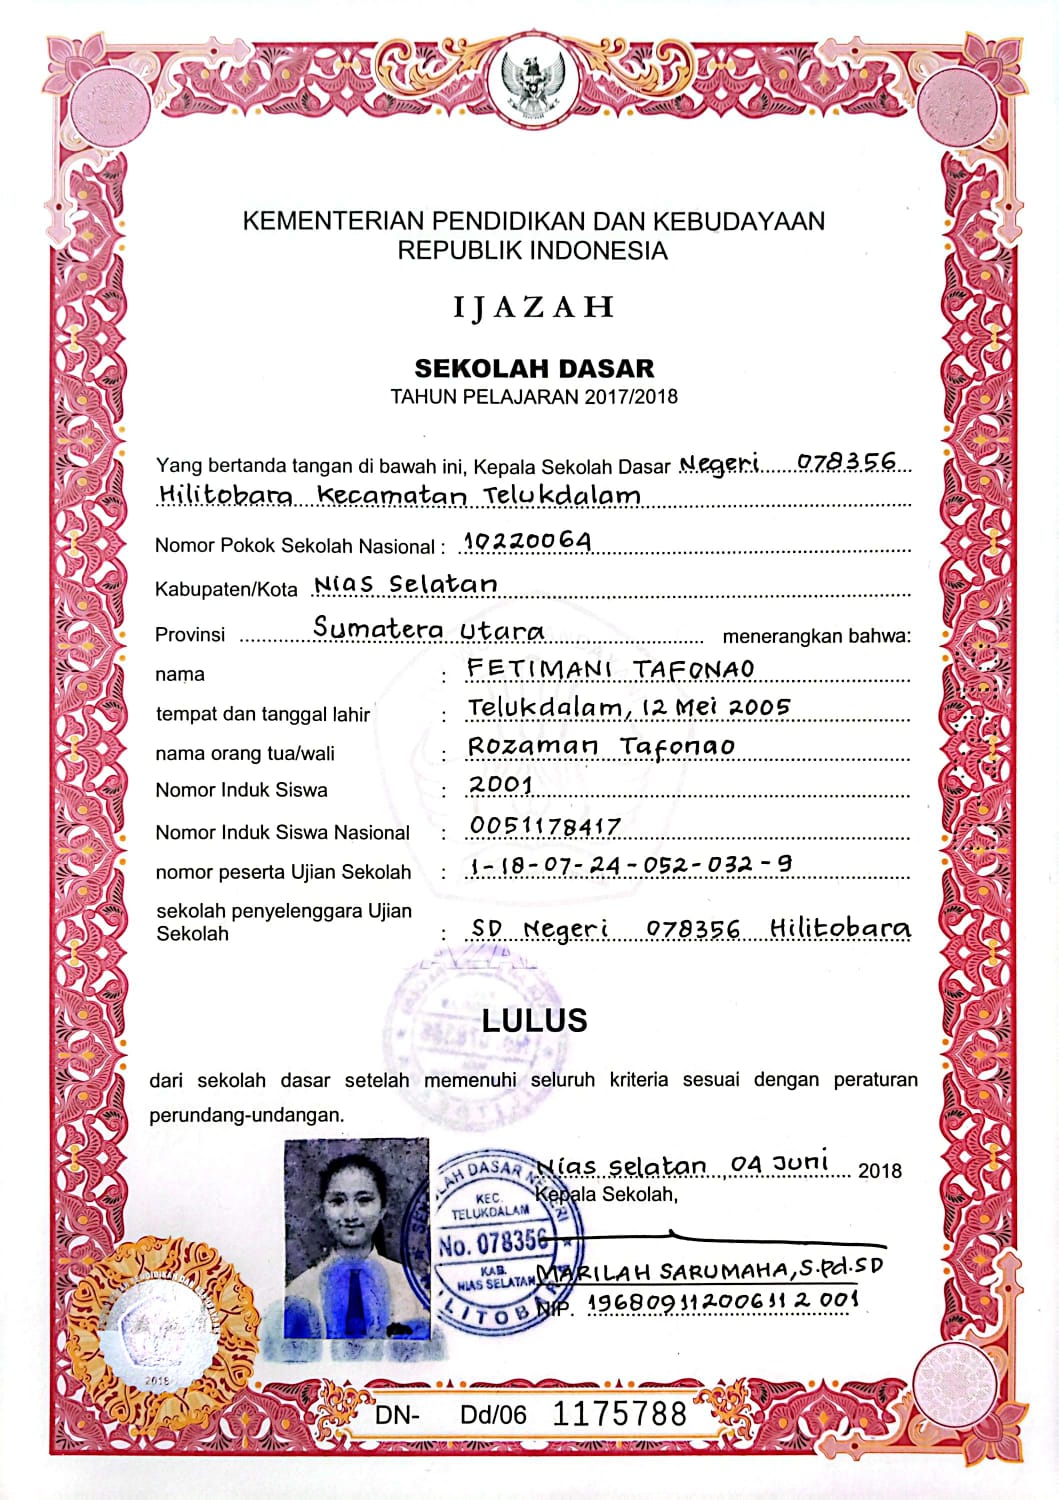 KEMENTERIAN PENDIDIKAN DAN KEBUDAYAAN
REPUBLIK INDONESIA
IJAZAH
SEKOLAH DASAR
TAHUN PELAJARAN 2017/2018
Yang bertanda tangan di bawah ini, Kepala Sekolah Dasar Negeri 078356
Hilitobara Kecamatan Telukdalam
Nomor Pokok Sekolah Nasional : 10220064
Kabupaten/Kota Nias Selatan
Provinsi Sumatera Utara menerangkan bahwa:
nama : FETIMANI TAFONAO
tempat dan tanggal lahir : Telukdalam, 12 Mei 2005
nama orang tua/wali : Rozaman Tafonao
Nomor Induk Siswa : 2001
Nomor Induk Siswa Nasional : 0051178417
nomor peserta Ujian Sekolah : 1-18-07-24-052-032-9
sekolah penyelenggara Ujian
Sekolah : SD Negeri 078356 Hilitobara
LULUS
dari sekolah dasar setelah memenuhi seluruh kriteria sesuai dengan peraturan
perundang-undangan.
Nias Selatan, 04 Juni 2018
Kepala Sekolah,
KEC.
TELUKDALAM
No. 078356
KAB.
NIAS SELATAN
MARILAH SARUMAHA, S.Pd.SD
NIP. 196809112006112001
2018
DN- Dd/06 1175788